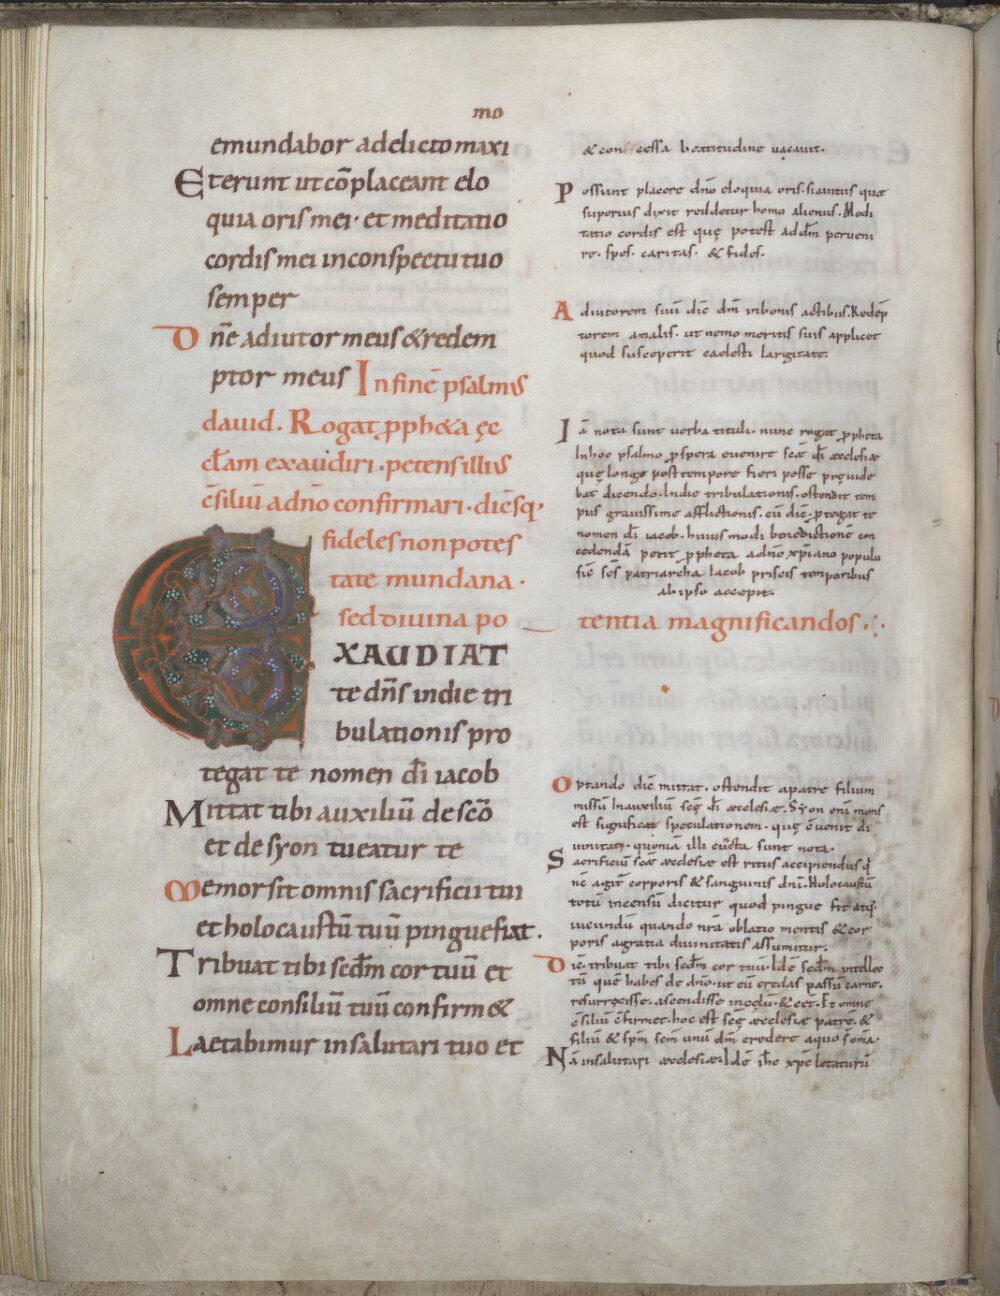 mo
emundabor adelicto maxi
Eterunt ut cōplaceant elo
quia oris mei· et meditatio
cordis mei inconspectu tuo
semper
Dn̄e adiutor meus & redem
ptor meus In finē psalmus
dauid. Rogat ꝓph&a ęc
cl̄am exaudiri · petens illius
c̄siliū adn̄o confirmari · dic̄s q̇
fideles non potes
tate mundana ·
sed diuina po
EXAUDIAT
te dn̄s indie tri
bulationis pro
tegat te nomen dī iacob
Mittat tibi auxiliū de scō
et de syon tueatur te
Memor sit omnis sacrificii tui
et holocaustū tuū pingue fiat .
Tribuat tibi scd̄m cor tuū et
omne consiliū tuū confirm&
Laetabimur in salutari tuo et
& con cessa beatitudine uacauit.
Possunt placere dn̄o eloquia oris · si auitus quae
superius dixit reddetur homo alienus. Medi
tatio cordis est quę potest addm̄ perueni
re. spes. caritas. & fides.
Adiutorem suū dic̄ dm̄ inbonis actibus. Redēp
torem amalis. ut nemo meritis suis applicet
quod susceperit caelesti largitate.
Iā nota sunt uerba tituli. nunc rogat ꝓpheta
Inhoc psalmo ꝓspera euenire scae dī aecclesiae
quę longo post tempore fieri posse pręuide
bat dicendo. Indie tribulationis. ostendit tem
pus grauissime afflictionis. cū dic̄. ꝓtegat te
nomen dī iacob. huius modi benedictionē con
cedendā petit ꝓpheta adn̄o xp̄iano populo
sic̄ scs̄ patriarcha Iacob priscis temporibus
ab ipso accepit.
tentia magnificandos .:.
Optando dic̄ mittat. ostendit apatre filium
missū Inauxiliū scę dī aecclesiae. Syon enī mons
est significat speculationem. quę c̄uenit di
uinitati. quoniā illi cūcta sunt nota.
Sacrificiū scae aecclesiae est ritus accipiendus q̇
nc̄ agit̄ corporis & sanguinis dn̄i. Holocaustū
totū incensū dicitur quod pingue fit atq;
iucundū quando nr̄a oblatio mentis & cor
poris agratia diuinitatis assumitur.
Dic̄. tribuat tibi scd̄m cor tuū. Idē scd̄m intellec
tū quē habes de dn̄o. ut eū credas passū carne.
resurrexisse. ascendisse incęlū. & cet. Et omne
c̄siliū c̄firmet. hoc est scę aecclesiae patrē. &
filiū & spm̄ scm̄ unū dm̄ credere aquo s̄ omīa.
Nā insalutari aecclesiae. Idē ih̄c xp̄c letaturū